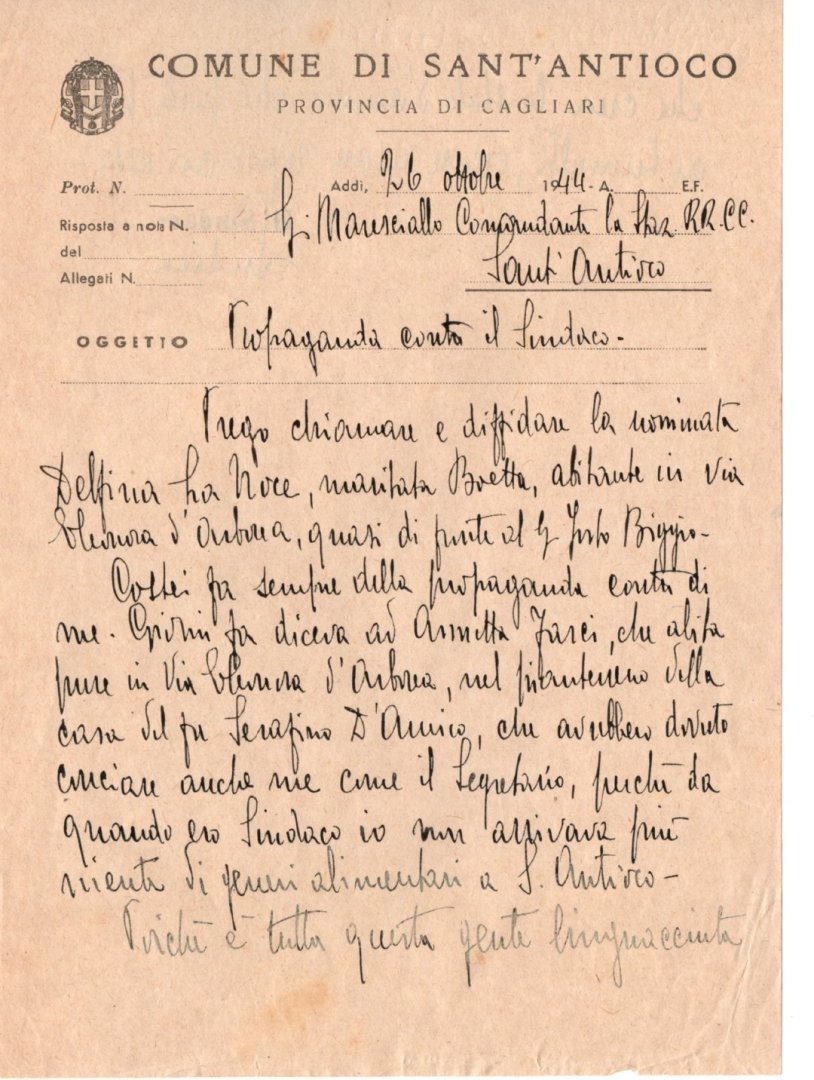 COMUNE DI SANT'ANTIOCO
PROVINCIA DI CAGLIARI
Prot. N.
Addì, 26 ottobre 1944 - A. E.F.
Risposta a nota N.
Maresciallo Comandante la Staz. RR.CC.
del
Sant'Antioco
Allegati N.
OGGETTO Propaganda contro il Sindaco -
Prego chiamare e diffidare la nominata
Delfina La Noce, maritata Boetta, abitante in via
Eleonora d'Arborea, quasi di fronte al Biggio -
Costei fa sempre della propaganda contro di
me. Giorni fa diceva ad Annetta, che abita
pure in Via Eleonora d'Arborea, nel pianterreno della
casa del fu Serafino D'Amico, che avrebbero dovuto
cacciare anche me come il Segretario, perché da
quando ero Sindaco io non arrivava più
niente di generi alimentari a S. Antioco -
Poiché è tutta questa gente linguacciuta